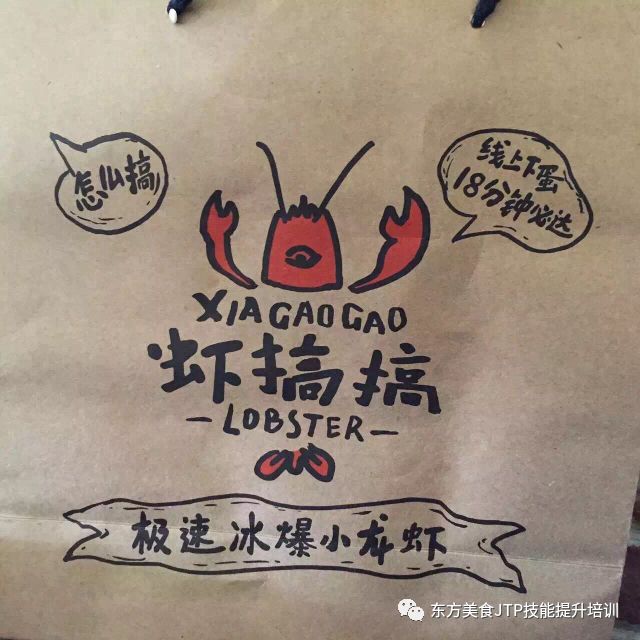 怎么搞
线上下蛋
18分钟必达
XIAGAOGAO
虾搞搞
LOBSTER
极速冰爆小龙虾
东方美食JTP技能提升培训